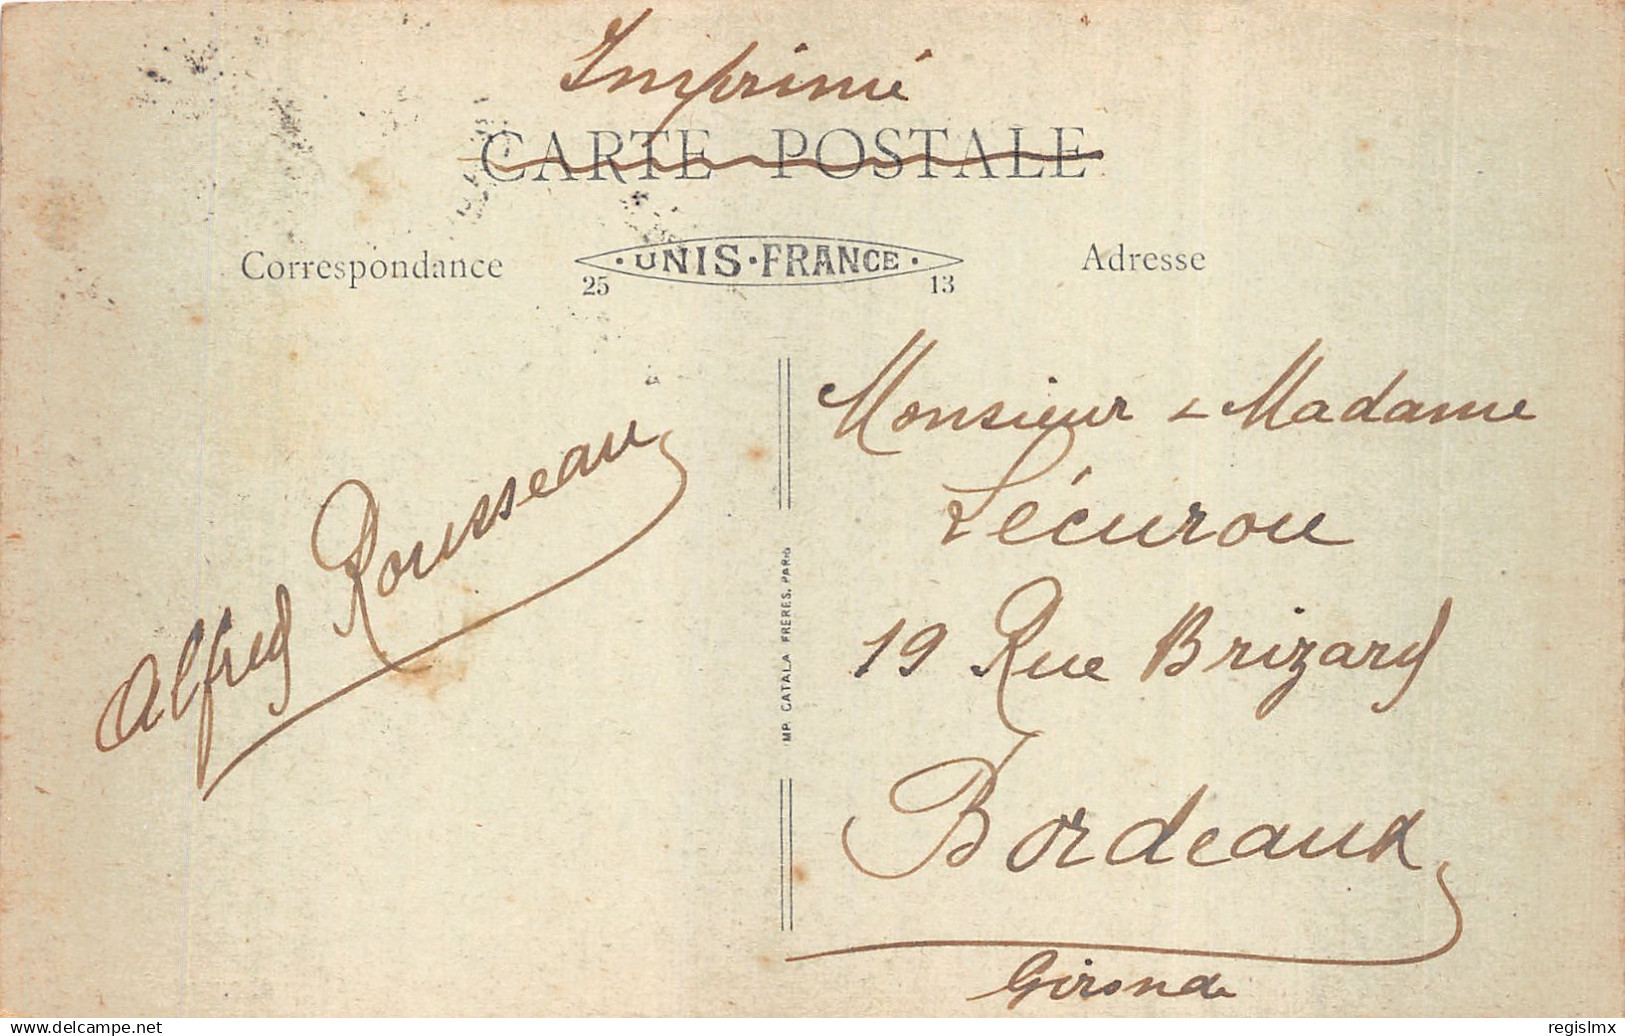 Imprimé
CARTE POSTALE
Correspondance
· UNIS · FRANCE ·
25 13
Adresse
Alfred Rousseau
Monsieur & Madame
Lécurou
19 Rue Brizard
Bordeaux
Gironde
IMP. CATALA FRÈRES, PARIS
www.delcampe.net
regislmx